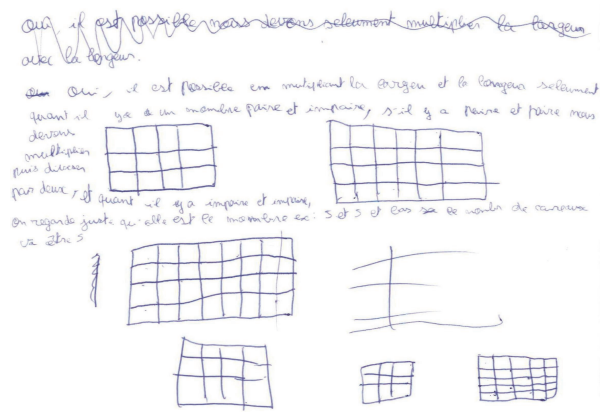 oui il est possible nous devons seleument multiplier la largeur
avec la longeur.
Oui, il est possible en multipliant la largeur et la longeur seleument
quant il y a un nombre paire et impaire, s'il y a paire et paire nous
devons
multiplier
puis diviser
par deux, et quant il y a impaire et impaire,
on regarde juste qu'elle est le nombre ex: 5 et 5 et bas le nombr de carreaux
va être 5